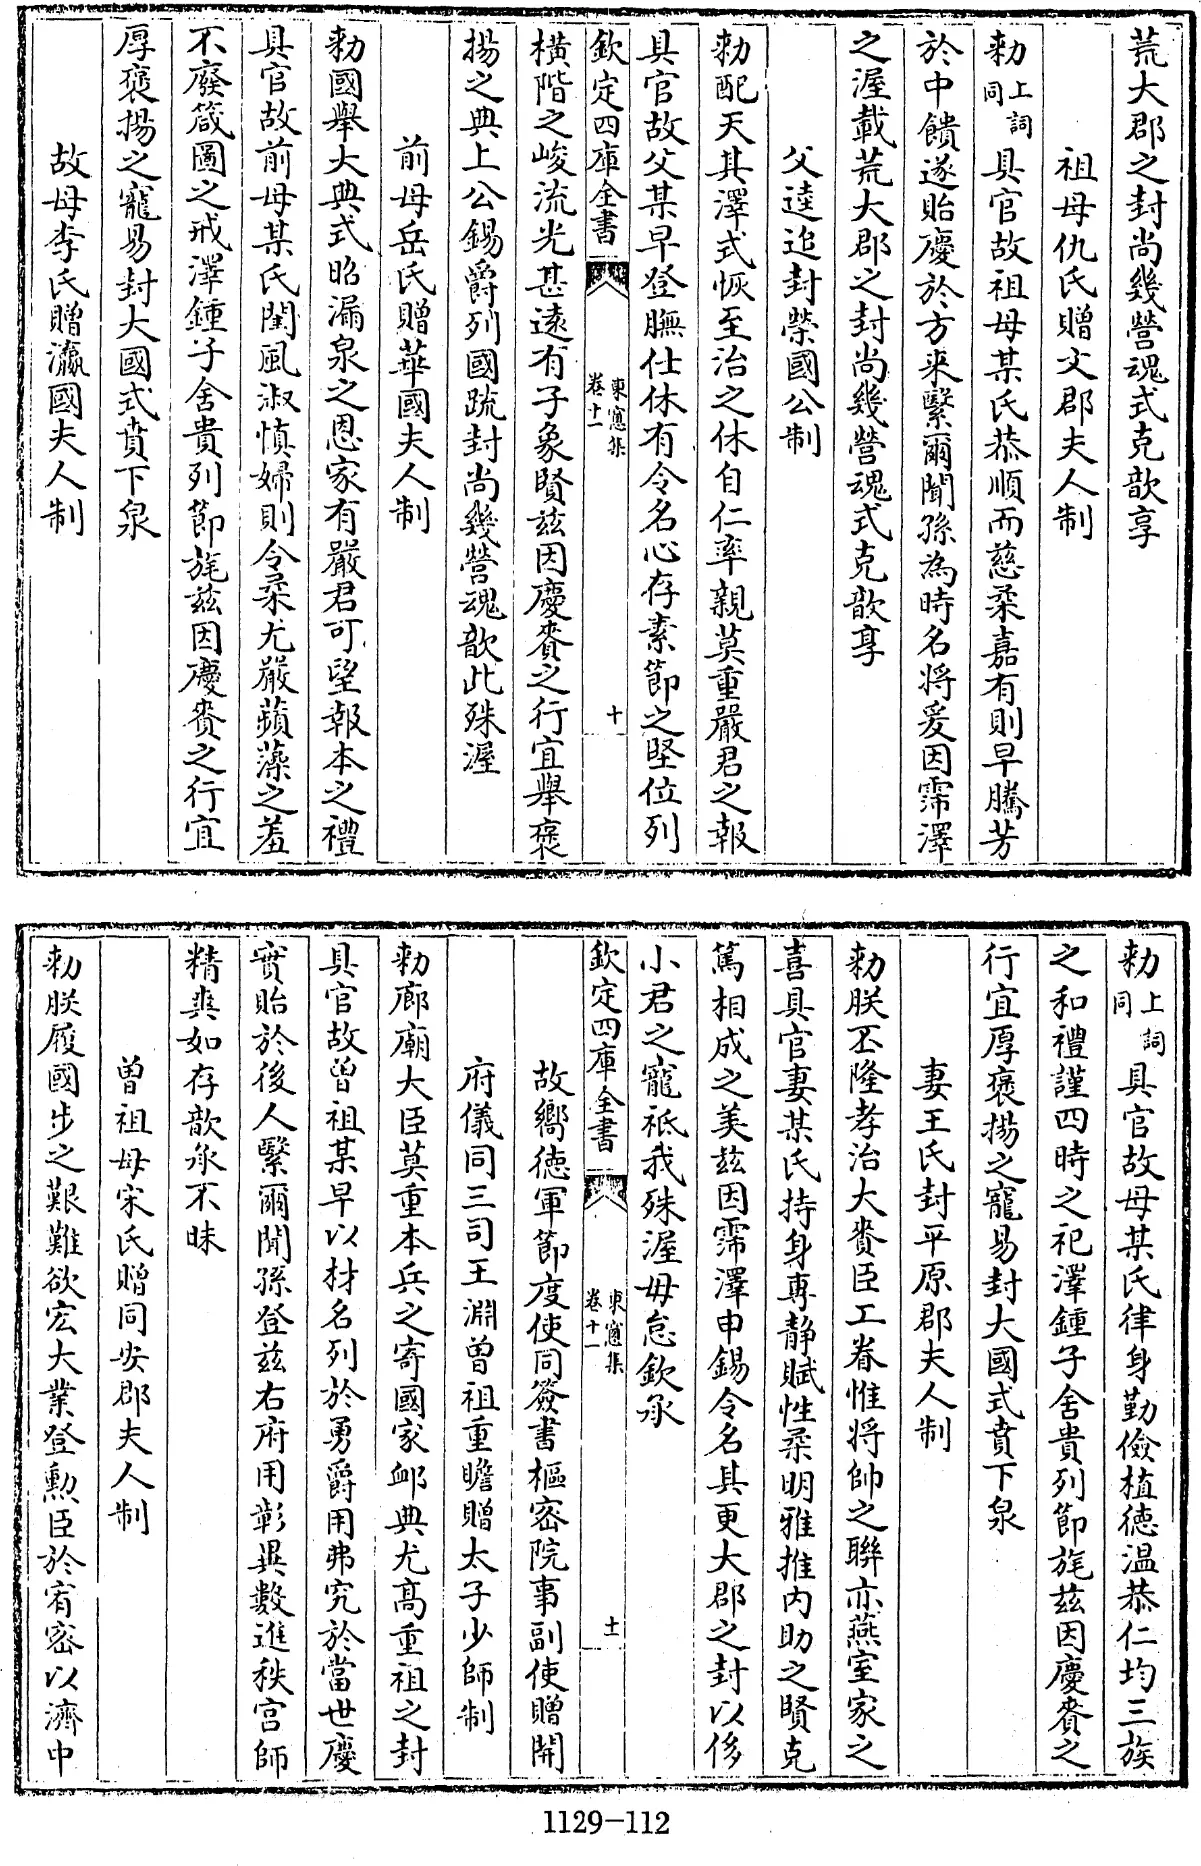 荒大郡之封尚幾營魂式克歆享
祖母仇氏贈文郡夫人制
勑上詞同具官故祖母某氏恭順而慈柔嘉有則早騰芳
於中饋遂貽慶於方來繄爾聞孫為時名將爰因霈澤
之渥載荒大郡之封尚幾營魂式克歆享
父逵追封榮國公制
勑配天其澤式恢至治之休自仁率親莫重嚴君之報
具官故父某早登膴仕休有令名心存素節之堅位列
欽定四庫全書
東窻集
卷十一
十
橫階之峻流光甚遠有子象賢兹因慶賚之行宜舉褒
揚之典上公錫爵列國疏封尚幾營魂歆此殊渥
前母岳氏贈華國夫人制
勑國舉大典式昭漏泉之恩家有嚴君可望報本之禮
具官故前母某氏閨風淑慎婦則令柔尤嚴蘋藻之羞
不廢箴圖之戒澤鍾子舍貴列節旄兹因慶賚之行宜
厚褒揚之寵易封大國式賁下泉
故母李氏贈瀛國夫人制
勑上詞同具官故母某氏律身勤儉植徳温恭仁均三族
之和禮謹四時之祀澤鍾子舍貴列節旄兹因慶賚之
行宜厚褒揚之寵易封大國式賁下泉
妻王氏封平原郡夫人制
勑朕丕隆孝治大賚臣工眷惟將帥之聯亦燕室家之
喜具官妻某氏持身專靜賦性柔明雅推内助之賢克
篤相成之美兹因霈澤申錫令名其更大郡之封以侈
小君之寵祇我殊渥毋怠欽承
欽定四庫全書
東窻集
卷十一
十一
故嚮徳軍節度使同簽書樞密院事副使贈開
府儀同三司王淵曽祖重瞻贈太子少師制
勑廊廟大臣莫重本兵之寄國家卹典尤髙重祖之封
具官故曽祖某早以材名列於勇爵用弗究於當世慶
實貽於後人繄爾聞孫登兹右府用彰異數進秩宫師
精爽如存歆承不昧
曽祖母宋氏贈同安郡夫人制
勑朕履國步之艱難欲宏大業登勲臣於宥密以濟中
1129-112